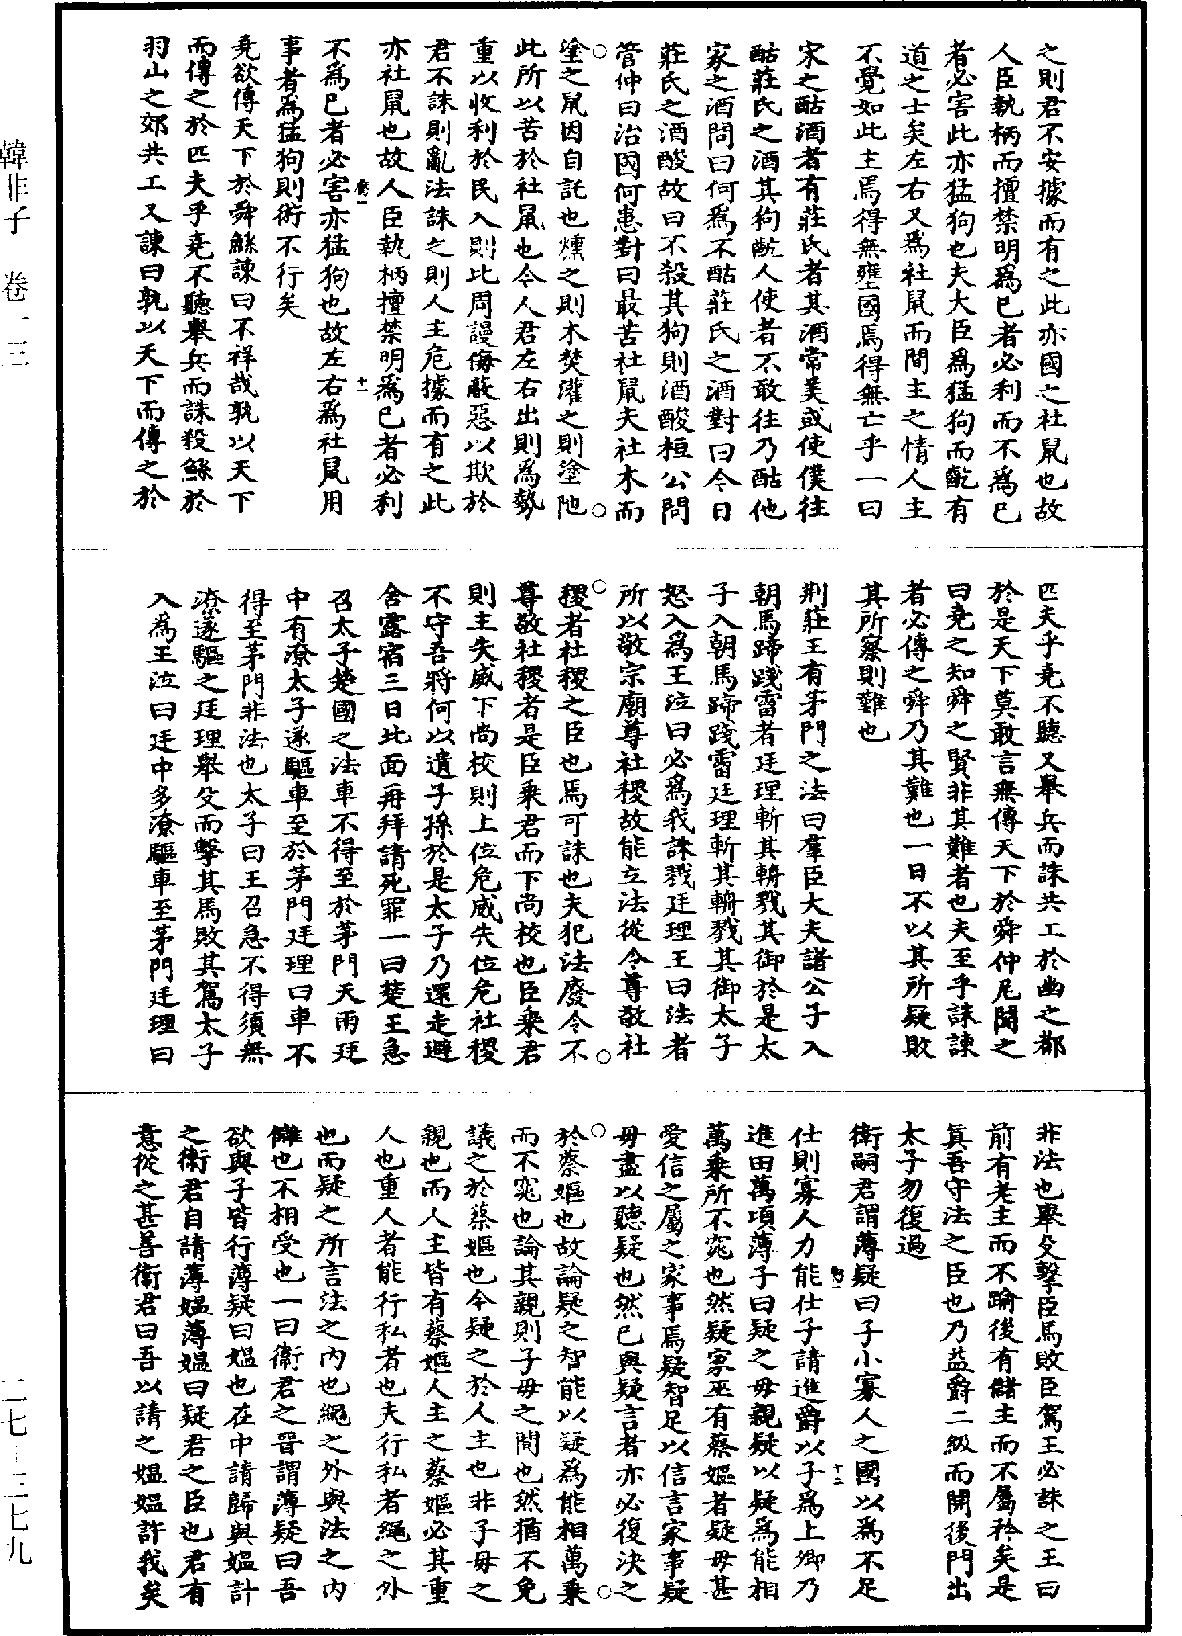 之則君不安據而有之此亦國之社鼠也故
人臣執柄而擅禁明為己者必利而不為己
者必害此亦猛狗也夫大臣為猛狗而齕有
道之士矣左右又為社鼠而間主之情人主
不覺如此主焉得無壅國焉得無亡乎一曰
宋之酤酒者有莊氏者其酒常美或使僕往
酤莊氏之酒其狗齕人使者不敢往乃酤他
家之酒問曰何為不酤莊氏之酒對曰今日
莊氏之酒酸故曰不殺其狗則酒酸桓公問
管仲曰治國何患對曰最苦社鼠夫社木而
塗之鼠因自託也燻之則木焚灌之則塗阤
此所以苦於社鼠也今人君左右出則為勢
重以收利於民入則比周謾侮蔽惡以欺於
君不誅則亂法誅之則人主危據而有之此
亦社鼠也故人臣執柄擅禁明為己者必利
不為己者必害亦猛狗也故左右為社鼠用
事者為猛狗則術不行矣
堯欲傳天下於舜鯀諫曰不祥哉孰以天下
而傳之於匹夫乎堯不聽舉兵而誅殺鯀於
羽山之郊共工又諫曰孰以天下而傳之於
匹夫乎堯不聽又舉兵而誅共工於幽之都
於是天下莫敢言無傳天下於舜仲尼聞之
曰堯之知舜之賢非其難者也夫至乎誅諫
者必傳之舜乃其難也一曰不以其所疑敗
其所察則難也
荆莊王有茅門之法曰羣臣大夫諸公子入
朝馬蹄踐霤者廷理斬其輈戮其御於是太
子入朝馬蹄踐霤廷理斬其輈戮其御太子
怒入為王泣曰必為我誅戮廷理王曰法者
所以敬宗廟尊社稷故能立法從令尊敬社
稷者社稷之臣也焉可誅也夫犯法廢令不
尊敬社稷者是臣乘君而下尚校也臣乘君
則主失威下尚校則上位危威失位危社稷
不守吾將何以遺子孫於是太子乃還走避
舍露宿三日北面再拜請死罪一曰楚王急
召太子楚國之法車不得至於茅門天雨廷
中有潦太子遂驅車至於茅門廷理曰車不
得至茅門非法也太子曰王召急不得須無
潦遂驅之廷理舉殳而擊其馬敗其駕太子
入為王泣曰廷中多潦驅車至茅門廷理曰
非法也舉殳擊臣馬敗臣駕王必誅之王曰
前有老主而不踰後有儲主而不屬矜矣是
真吾守法之臣也乃益爵二級而開後門出
太子勿復過
衛嗣君謂薄疑曰子小寡人之國以為不足
仕則寡人力能仕子請進爵以子為上卿乃
進田萬頃薄子曰疑之母親疑以疑為能相
萬乘所不窕也然疑家巫有蔡嫗者疑母甚
愛信之屬之家事焉疑智足以信言家事疑
母盡以聽疑也然已與疑言者亦必復決之
於蔡嫗也故論疑之智能以疑為能相萬乘
而不窕也論其親則子母之間也然猶不免
議之於蔡嫗也今疑之於人主也非子母之
親也而人主皆有蔡嫗人主之蔡嫗必其重
人也重人者能行私者也夫行私者繩之外
也而疑之所言法之內也繩之外與法之內
讎也不相受也一曰衛君之晉謂薄疑曰吾
欲與子皆行薄疑曰媼也在中請歸與媼計
之衛君自請薄媼薄媼曰疑君之臣也君有
意從之甚善衛君曰吾以請之媼媼許我矣
韓非子 卷一三
二七-三七九